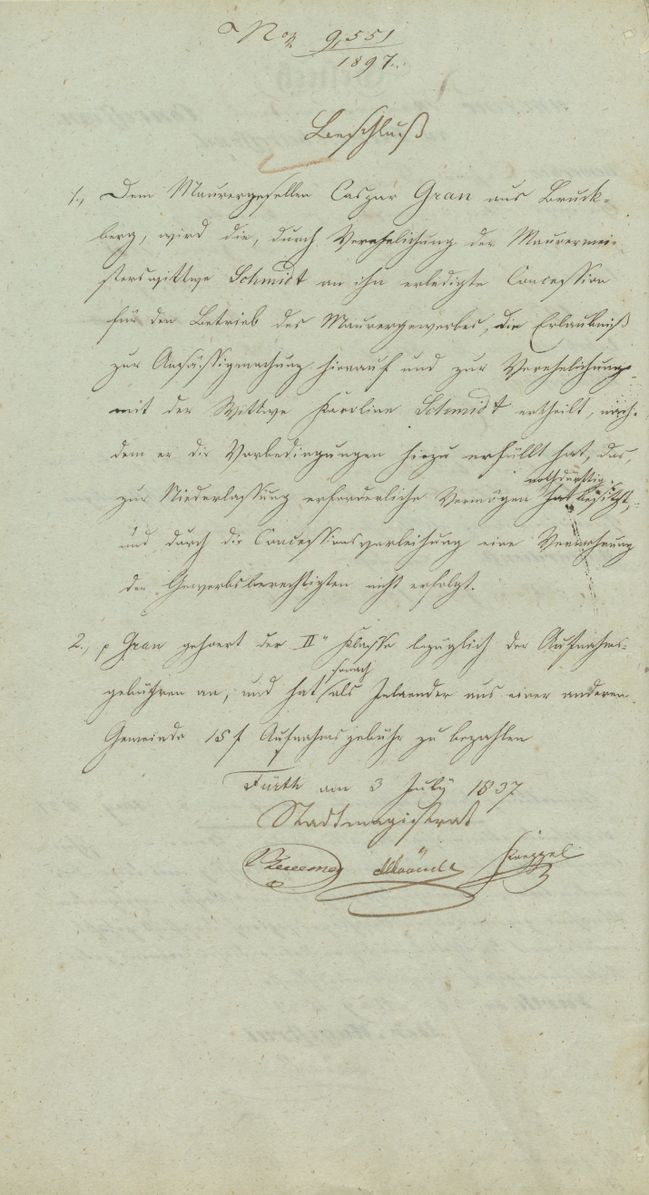 No. 9,551
1837.
Beschluß
1., Dem Maurergesellen Caspar Gran aus Bruck-
berg, wird die, durch Verehelichung der Maurermei-
sterswittwe Schmidt an ihn erledigte Concession
für den Betrieb des Maurergewerbes, die Erlaubniß
zur Ansäßigmachung hierauf und zur Verehelichung
mit der Wittwe Karoline Schmidt ertheilt, nach-
dem er die Vorbedingungen hiezu erfüllt hat, das,
nothdürftig
zur Niederlassung erforderliche Vermögen hat besitzt,
und durch die Concessionsverleihung eine Vermehrung
der Gewerbsberechtigten nicht erfolgt.
2., p Gran gehoert der II Klasse bezüglich der Aufnahms-
sonach
gebühren an, und hat als Inlaender aus einer anderen
Gemeinde 15 f Aufnahmsgebühr zu bezahlen
Fürth am 3 July 1837
Stadtmagistrat
Koeppel